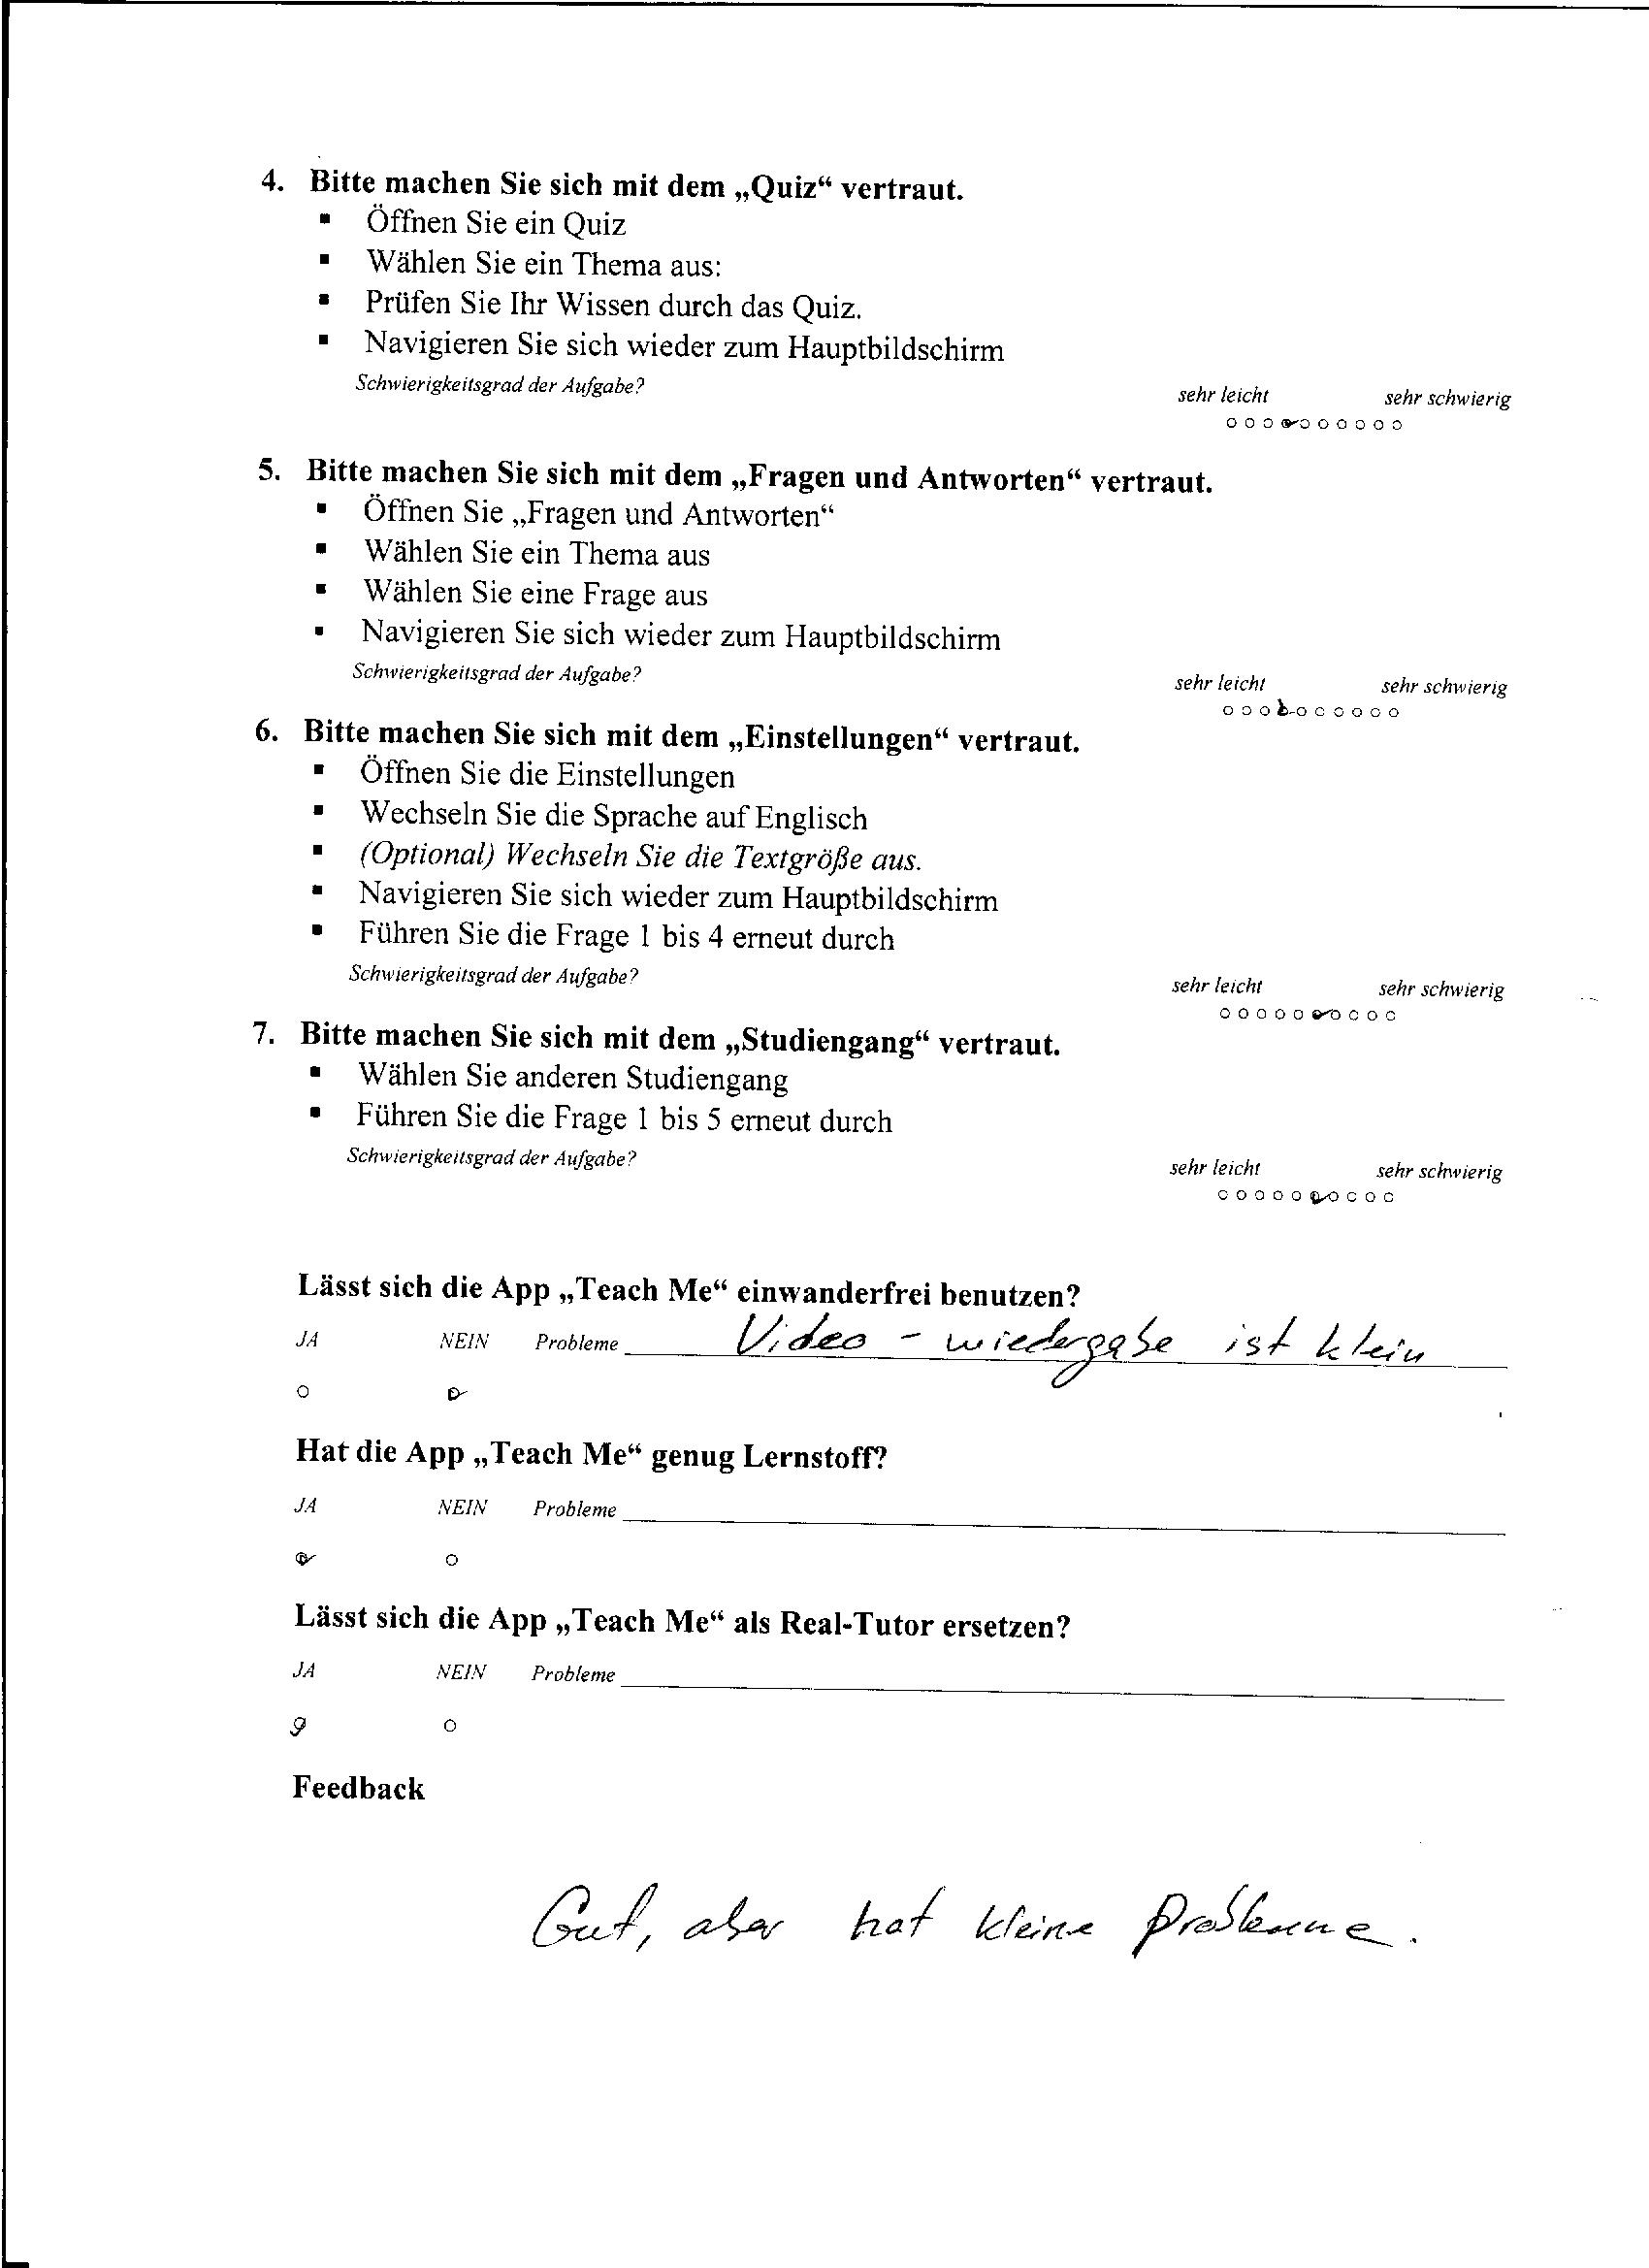 4. Bitte machen Sie sich mit dem „Quiz“ vertraut.
▪ Öffnen Sie ein Quiz
▪ Wählen Sie ein Thema aus:
▪ Prüfen Sie Ihr Wissen durch das Quiz.
▪ Navigieren Sie sich wieder zum Hauptbildschirm
Schwierigkeitsgrad der Aufgabe?
sehr leicht sehr schwierig
5. Bitte machen Sie sich mit dem „Fragen und Antworten“ vertraut.
▪ Öffnen Sie „Fragen und Antworten“
▪ Wählen Sie ein Thema aus
▪ Wählen Sie eine Frage aus
▪ Navigieren Sie sich wieder zum Hauptbildschirm
Schwierigkeitsgrad der Aufgabe?
sehr leicht sehr schwierig
6. Bitte machen Sie sich mit dem „Einstellungen“ vertraut.
▪ Öffnen Sie die Einstellungen
▪ Wechseln Sie die Sprache auf Englisch
▪ (Optional) Wechseln Sie die Textgröße aus.
▪ Navigieren Sie sich wieder zum Hauptbildschirm
▪ Führen Sie die Frage 1 bis 4 erneut durch
Schwierigkeitsgrad der Aufgabe?
sehr leicht sehr schwierig
7. Bitte machen Sie sich mit dem „Studiengang“ vertraut.
▪ Wählen Sie anderen Studiengang
▪ Führen Sie die Frage 1 bis 5 erneut durch
Schwierigkeitsgrad der Aufgabe?
sehr leicht sehr schwierig
Lässt sich die App „Teach Me“ einwanderfrei benutzen?
JA NEIN Probleme Video - wiedergabe ist klein
Hat die App „Teach Me“ genug Lernstoff?
JA NEIN Probleme
Lässt sich die App „Teach Me“ als Real-Tutor ersetzen?
JA NEIN Probleme
Feedback
Gut, aber hat kleine Probleme.